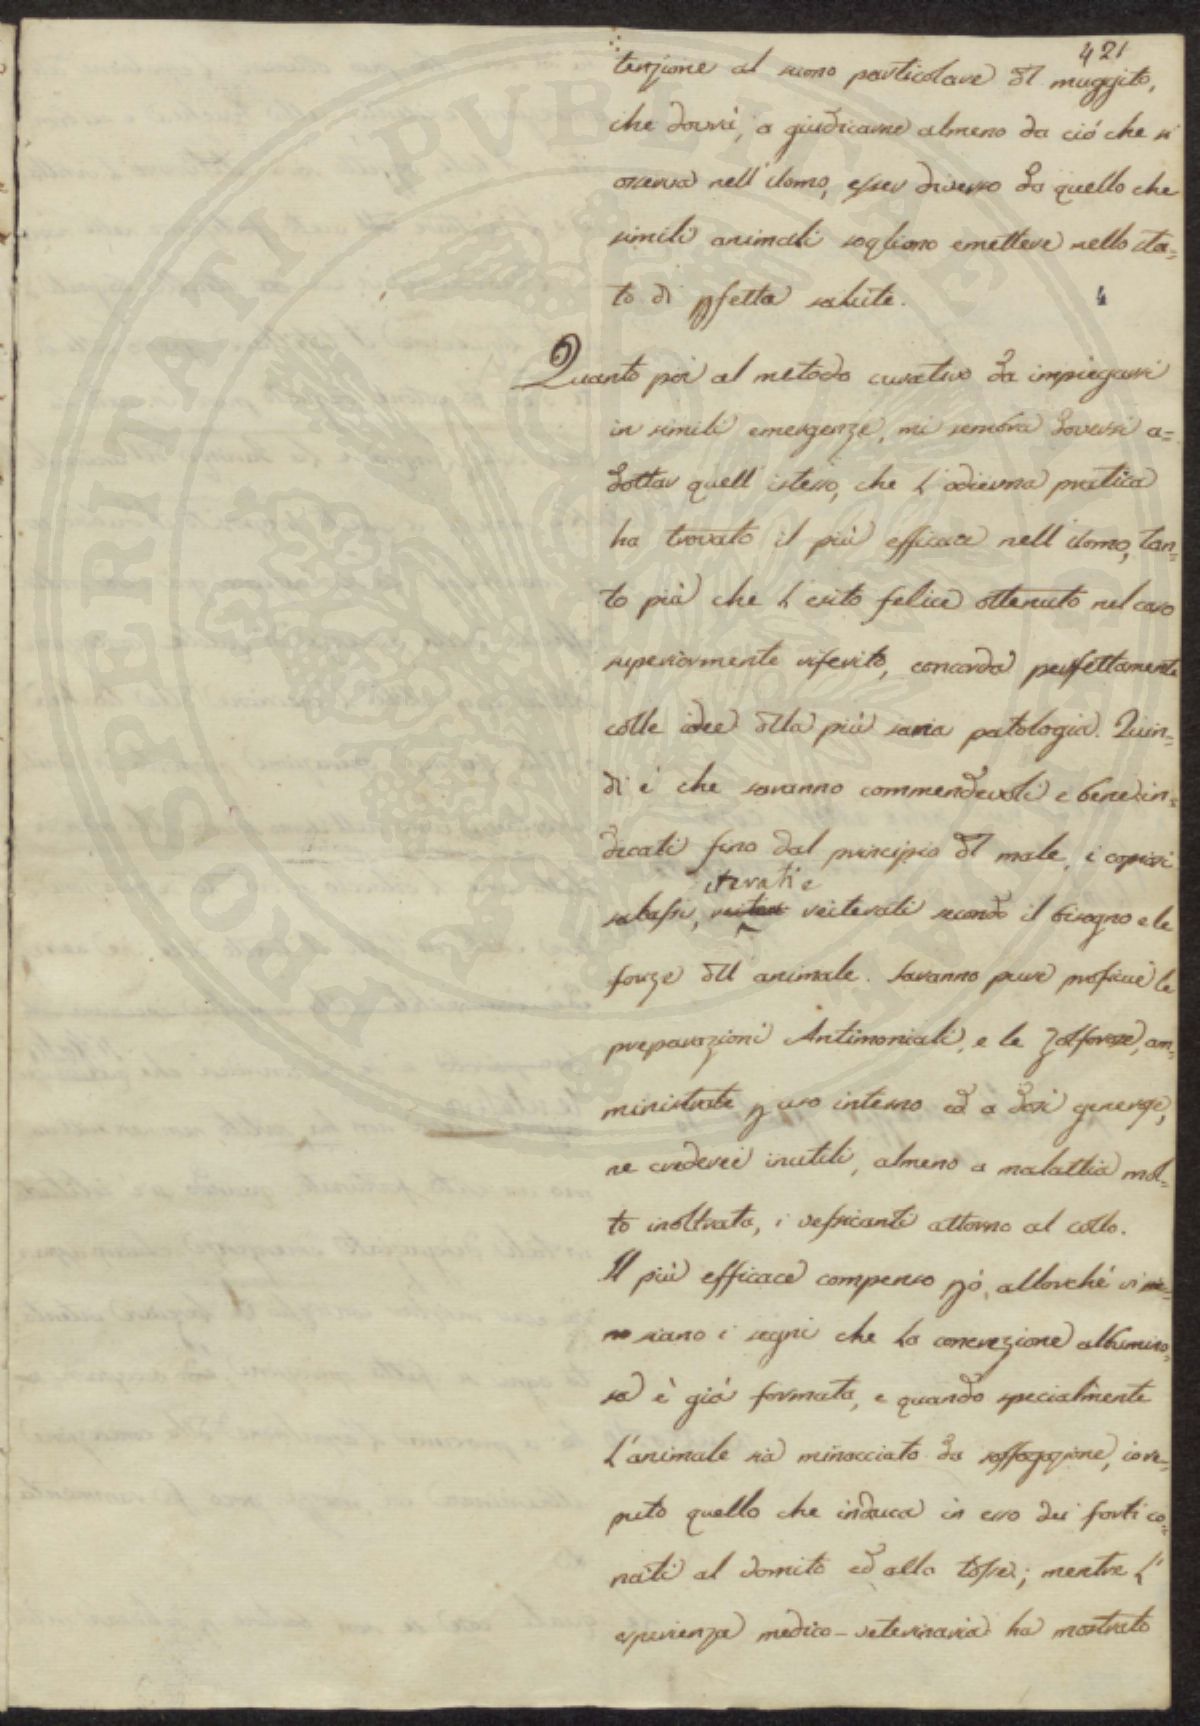 421
tenzione al suono particolare dl muggito,
che dovrà, a giudicarne almeno da ciò che si
osserva nell'Uomo, esser diverso da quello che
simili animali sogliono emettere nello sta=
to di pfetta salute.
4
Quanto poi al metodo curativo da impiegarsi
in simili emergenze, mi sembra doversi a=
dottar quell'istesso, che l'odierna pratica
ha trovato il più efficace nell'Uomo, tan=
to più che l'esito felice ottenuto nel caso
superiormente riferito, concorda perfettamente
colle idee dlla più sana patologia. Quin=
di è che saranno commendevoli e bene in=
dicati fino dal principio dl male, i copiosi
iterati e
salassi, reiterati secondo il bisogno e le
forze dll'animale. Saranno pure proficue le
preparazioni Antimoniali, e le Zolforose, am=
ministrate p uso interno ed a dosi generose,
ne crederei inutili, almeno a malattia mol=
to inoltrata, i vessicanti attorno al collo.
Il più efficace compenso pò, allorché vi
siano i segni che la concrezione albumino=
sa è già formata, e quando specialmente
l'animale sia minacciato da soffogazione, io re=
puto quello che induca in esso dei forti co=
nati al vomito ed alla tosse; mentre l'
esperienza medico-veterinaria ha mostrato
PROSPERITATI PUBLICAE AUGENDAE